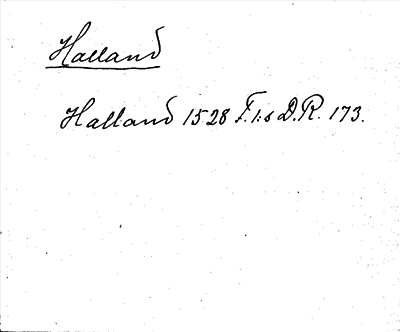 Halland
Halland 1528 F.1:s D.R. 173.